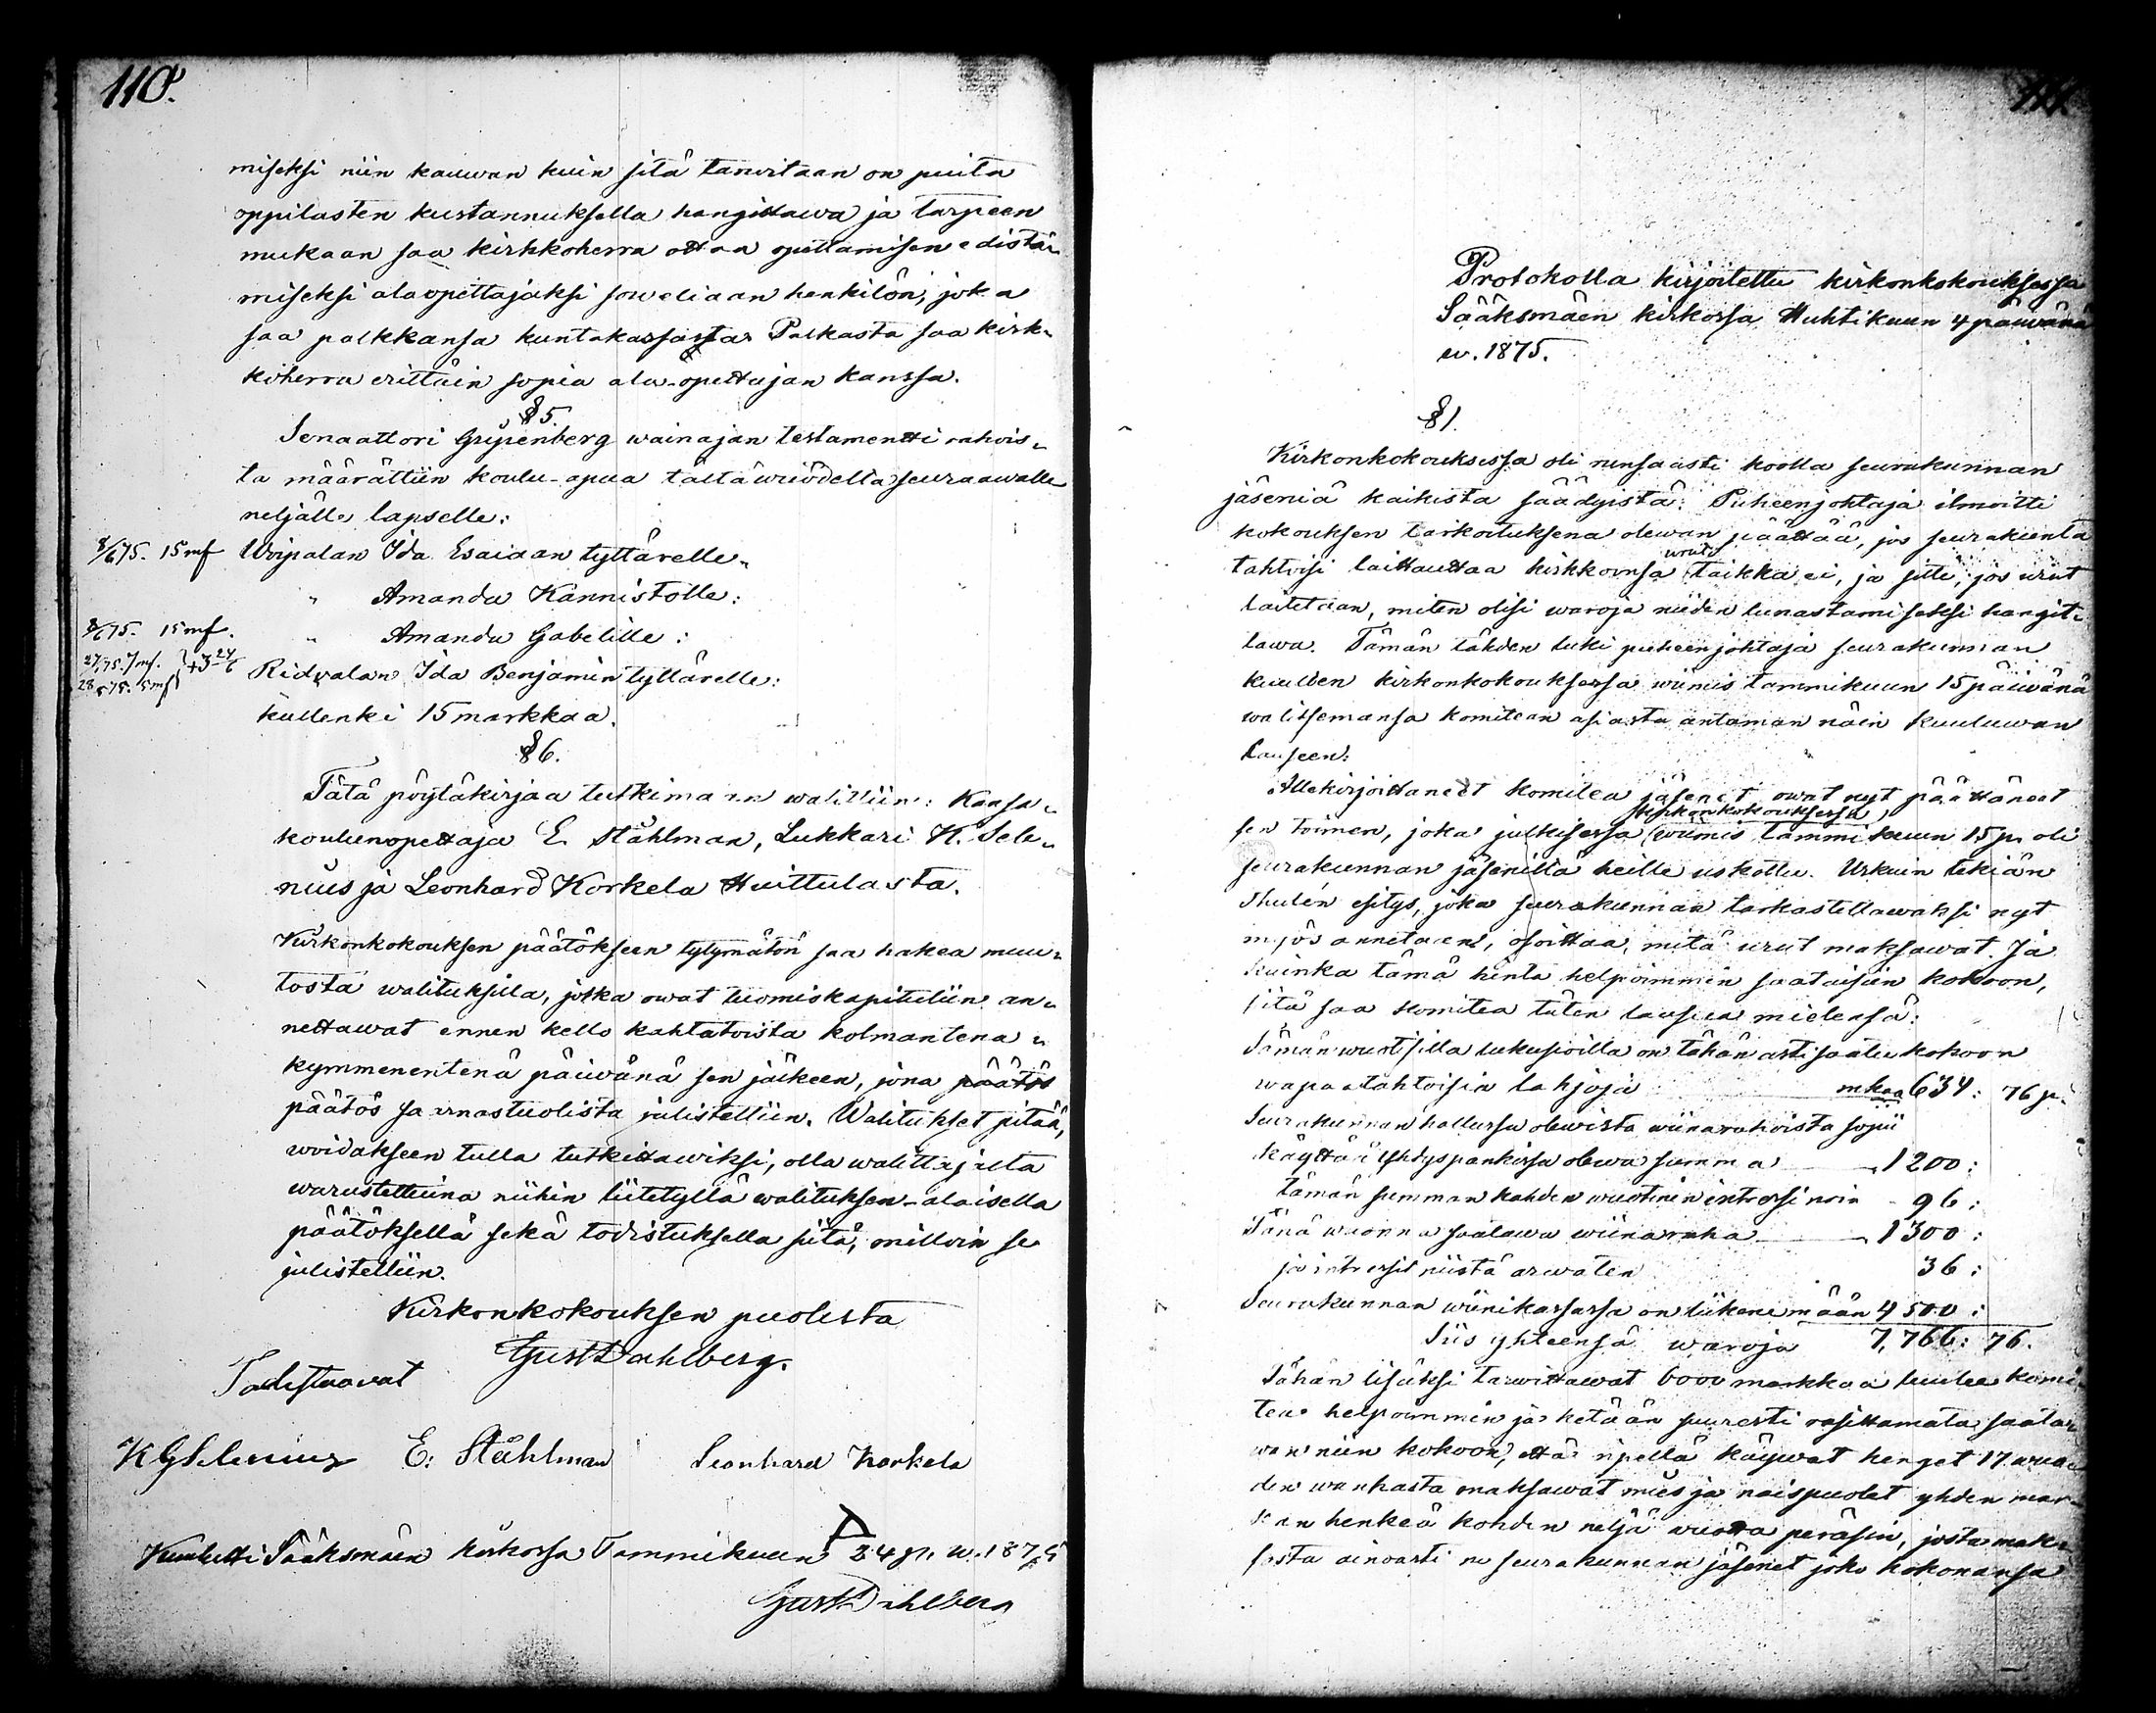 110.
miseksi niin kauwan kuin sitä tarwitaan on puita
oppilasten kustannuksella hangittawa ja tarpeen
mukaan saa kirkkoherra ottaa opettamisen edistä-
miseksi alaopettajaksi soweliaan henkilön, joka
saa palkkansa kuntakassasta. Palkasta saa kirk-
koherra erittäin sopia ala-opettajan kanssa.
§ 5.
Senaattori Gripenberg wainajan testamentti rahois-
ta määrättiin koulu-apua tältä wuodelta seuraawalle
neljälle lapselle:
8/6 75. 15 mk Woipalan Ida Esaiaan tyttärelle.
" Amanda Kännistölle:
8/6 75. 15 mk. " Amanda Gabelille:
Ridvalan Ida Benjamin tyttärelle:
kullenki 15 markkaa.
§ 6.
Tätä pöytäkirjaa tutkimaan walittiin: Kansa-
koulunopettaja E. Ståhlman, Lukkari K. Sele-
nius ja Leonhard Korkela Huittulasta.
Kirkonkokouksen päätökseen tytymätön saa hakea muu-
tosta walituksila, jotka owat tuomiokapituliin an-
nettawat ennen kello kahtatoista kolmantena
kymmenentenä päiwänä sen jälkeen, jona päätös
päätös saarnastuolista julistettiin. Walitukset pitää,
woidakseen tulla tutkittawiksi, olla walittajalta
warustettuina niihin liitetyllä walituksen-alaisella
päätöksellä sekä todistuksella siitä, milloin se
julistettiin.
Kirkonkokouksen puolesta
Gust Dahlberg.
Todistaavat
K G Selenius E. Ståhlman Leonhard Korkela
Kuulutti Sääksmäen kirkossa Tammikuun 24 p. w. 1875
Gust Dahlberg
111.
Protokolla kirjoitettu kirkonkokouksessa
Sääksmäen kirkossa Huhtikuun 4 päiwänä
w. 1875.
§ 1.
Kirkonkokouksessa oli runsaasti koolla seurakunnan
jäseniä kaikista säädyistä. Puheenjohtaja ilmoitti
kokouksen tarkoituksena olewan päättää, jos seurakunta
tahtoisi laittauttaa kirkkoonsa urut taikka ei, ja sitte, jos urut
laitetaan, miten olisi waroja niiden lunastamiseksi hangit-
tawa. Tämän tähden luki puheenjohtaja seurakunnan
kuullen kirkonkokouksessa wiimis tammikuun 15 päiwänä
walitsemansa komitean asiasta antaman näin kuuluwan
lauseen:
Allekirjoittaneet komitea jäsenet owat nyt päättäneet
sen toimen, joka julkisessa kirkonkokouksessa wiimis tammikuun 15 p. oli
seurakunnan jäseniltä heille uskottu. Urkuin tekiän
Thulén esitys, joka seurakunnan tarkastettawaksi nyt
myös annetaan, osoittaa, mitä urut maksawat. Ja
kuinka tämä hinta helpoimmin saataisiin kokoon,
sitä saa komitea täten lausua mielensä:
Tämän wuotisilla lukusioilla on tähän asti saatu kokoon
wapaatahtoisia lahjoja mkaa 634: 76 p.
Seurakunnan hallussa olewista wiinarahoista sopii
käyttää Yhdyspankissa olewa summa 1200:
tämän summan kahden wuotinen intressi noin 96:
Tänä wuonna saatawa wiinaraha 1300:
ja intressit niistä arwaten 36:
Seurakunnan wiinikassassa on liikenemään 4500:
Siis yhteensä waroja 7,766: 76.
Tähän lisäksi tarwittawat 6000 markkaa luulee komi-
tea helpommin ja ketään suuresti rasittamata saata-
wan niin kokoon, että ripellä käywät henget 17 wuo-
den wanhasta maksawat mies ja naispuolet yhden mar-
kan henkeä kohden neljä wuotta peräsin, josta mak-
sosta ainoasti ne seurakunnan jäsenet joko kokonansa